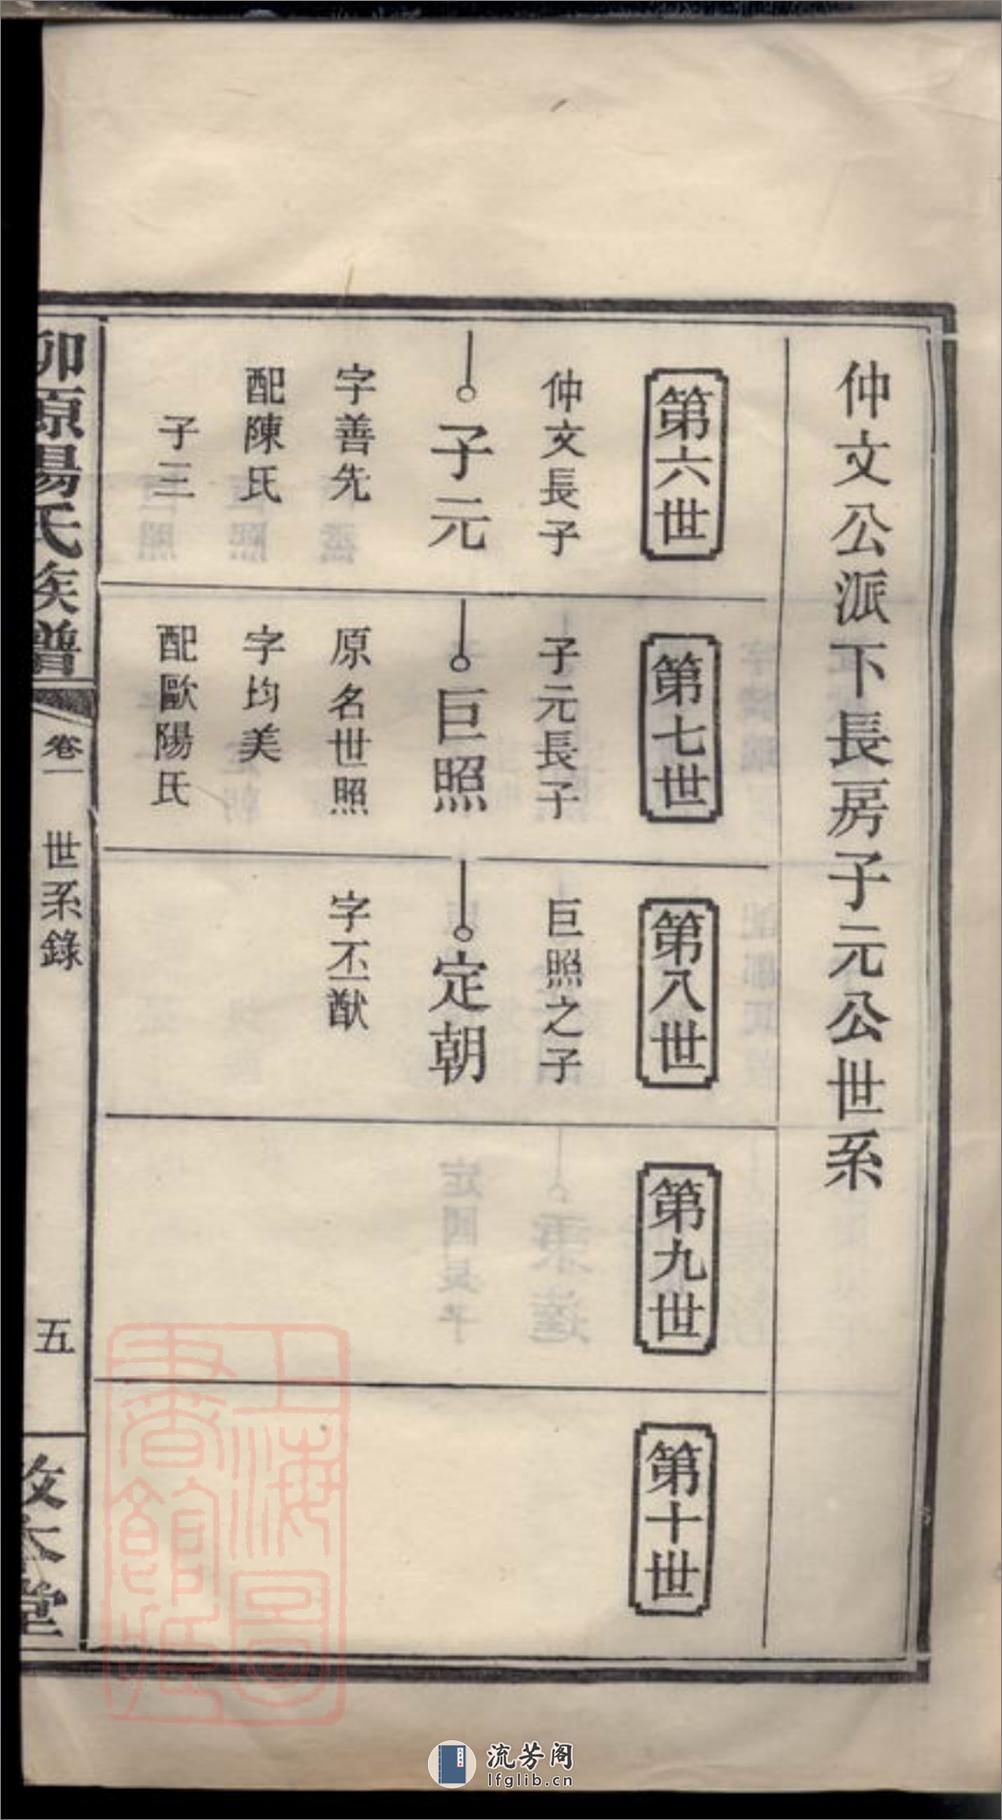 仲文公派下長房子元公世系
第六世
仲文長子
子元
字善先
配陳氏
子三
第七世
子元長子
巨照
原名世照
字均美
配歐陽氏
第八世
巨照之子
定朝
字丕猷
第九世
第十世
柳原楊氏族譜
卷一
世系錄
五
敦本堂
上海圖書館藏
流芳阁
lfglib.cn